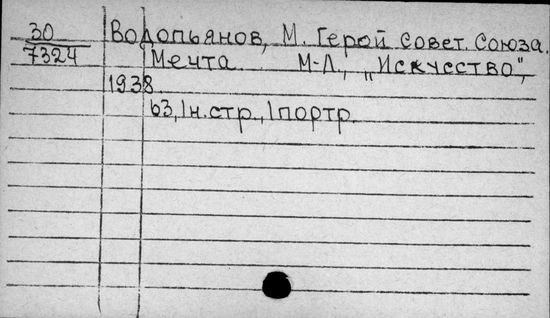 30 Водопьянов, М. Герой Совет. Союза.
7324 Мечта М-Л., „Искусство",
1938.
63, 1н. стр., 1портр.